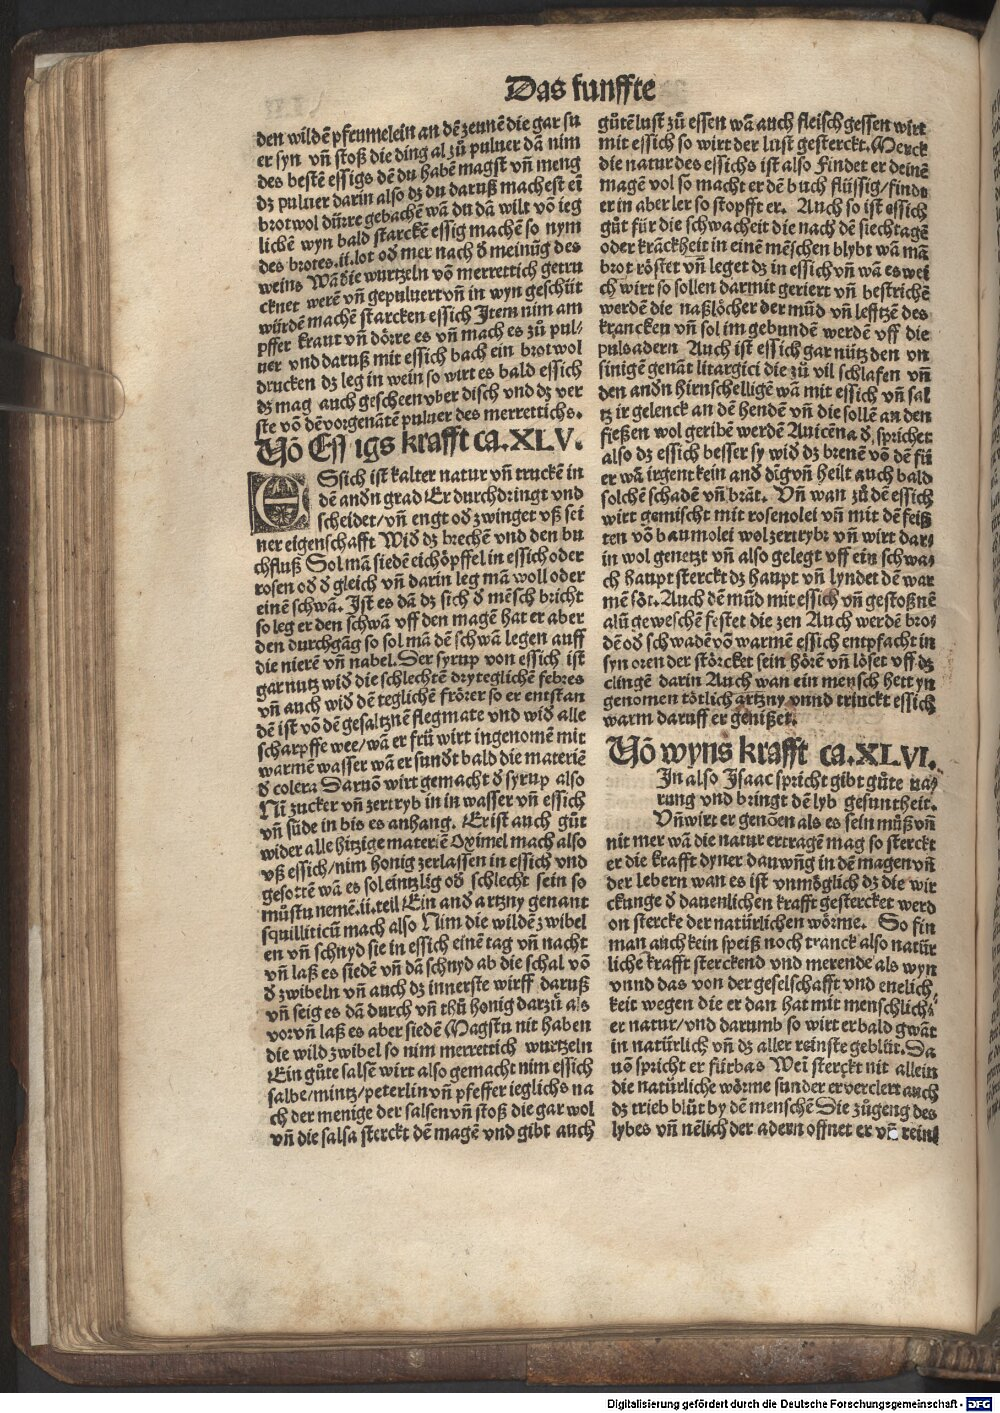 Das funffte
den wildē pfeumelein an dē zeunē die gar su
er syn vñ stoß die ding al zů puluer dā nim
des bestē essigs dē du habē magst vñ meng
dz puluer darin also dz du daruß machest eī
brot wol dürre gebachē wā du dā wilt vō ieg
lichē wyn bald starckē essig machē so nym
des brotes.ii.lot oď mer nach ď meinūg des
weins Wā die wurtzeln vō merrettich getru
cknet werē vñ gepuluert vñ in wyn geschüt
würdē machē starcken essich Item nim am
pffer kraut vñ dörre es vñ mach es zů pul/
uer vnd daruß mit essich bach ein brot wol
drucken dz leg in wein so wirt es bald essich
dz mag auch gescheen vber disch vnd dz ver
ste vō dē vorgenātē puluer des merrettichs.
Uō Essigs krafft ca.XLV.
ESsich ist kalter natur vñ truckē in
dē andn grad Er durchdringt vnd
scheidet/vñ engt oď zwinget vß sei
ner eigenschafft Wiď dz brechē vnd den bu
chfluß Sol mā siedē eichöpffel in essich oder
rosen oď ď gleich vñ darin leg mā woll oder
einē schwā. Ist es dā dz sich ď mēsch bricht
so leg er den schwā vff den magē hat er aber
den durchgāg so sol mā dē schwā legen auff
die nierē vñ nabel. Der syrup von essich ist
gar nutz wiď die schlechtē dryteglichē febres
vñ auch wiď dē teglichē frörer so er entstan
dē ist vō dē gesaltznē flegmate vnd wiď alle
scharpffe wee/wā er frü wirt ingenomē mit
warmē wasser wā er sundt bald die materiē
ď colera Daruō wirt gemacht ď syrup also
Nī zucker vñ zertryb in in wasser vñ essich
vñ süde in bis es anhang. Er ist auch gůt
wider alle hitzige materiē Oximel mach also
vß essich/nim honig zerlassen in essich vnd
gesottē wā es sol eintzlig oď schlecht sein so
můstu nemē.ii.teil Ein anď artzny genant
squilliticū mach also Nim die wildē zwibel
en vñ schnyd sie in essich einē tag vñ nacht
vñ laß es siedē vñ dā schnyd ab die schal vō
ď zwibeln vñ auch dz innerste wirff daruß
vñ seig es dā durch vñ thů honig darzů als
vor vñ laß es aber siedē Magstu nit haben
die wild zwibel so nim merrettich wurtzeln
Ein gůte salsē wirt also gemacht nim essich
salbe/mintz/peterlin vñ pfeffer ieglichs na
ch der menige der salsen vñ stoß die gar wol
vñ die salsa sterckt dē magē vnd gibt auch
gůtē lust zů essen wā auch fleisch gessen wirt
mit essich so wirt der lust gesterckt. Merck
die natur des essichs ist also Findet er deinē
magē vol so macht er dē buch flüssig/finds
er in aber ler so stopfft er. Auch so ist essich
gůt für die schwacheit die nach dē siechtagē
oder krāckheit in einē mēschen blybt wā mā
brot röstet vñ leget dz in essich vñ wā es wei
ch wirt so sollen darmit geriert vñ bestrichē
werdē die naßlöcher der mūd vñ lefftzē des
krancken vñ sol im gebundē werdē vff die
pulsadern Auch ist essich gar nütz den vn
sinigē genāt litargici die zů vil schlafen vñ
den andn hirnschelligē wā mit essich vñ sal
tz ir gelenck an dē hendē vñ die sollē an den
fießen wol geribē werdē Auicēna ď, sprichet
also dz essich besser sy wiď dz brenē vō dē fü
er wā irgent kein anď dīg vñ heilt auch bald
solchē schadē vñ brāt. Vñ wan zů dē essich
wirt gemischt mit rosenolei vñ mit dē feiß
ten vō baumolei wol zertrybr vñ wirt dar/
in wol genetzt vñ also gelegt vff ein schwa/
ch haupt sterckt dz haupt vñ lyndet dē war
mē söt. Auch dē mūd mit essich vñ gestoßnē
alū geweschē festet die zen Auch werdē bro/
dē oď schwadē vō warmē essich entpfacht in
syn oren der störcket sein hörē vñ löset vff dz
clingē darin Auch wan ein mensch hett yn
genomen tötlich artzny vnnd trinckt essich
warm daruff er genißet.
Uō wyns krafft ca.XLVI.
In also Isaac spricht gibt gůte na/
rung vnd bringt dē lyb gesuntheit.
Vñ wirt er genōen als es sein můß vñ
nit mer wā die natur ertragē mag so sterckt
er die krafft dyner dauwñg in dē magen vñ
der lebern wan es ist vnmöglich dz die wir
ckunge ď dauenlichen krafft gestercket werd
on stercke der natürlichen wörme. So fin
man auch kein speiß noch tranck also natür
liche krafft sterckend vnd merende als wyn
vnnd das von der geselschafft vnd enelich/
keit wegen die er dan hat mit menschlich/
er natur/vnd darumb so wirt er bald gwāt
in natürlich vñ dz aller reinste geblüt. Da
uō spricht er fürbas Weī sterckt nit allein
die natürliche wörme sunder er verclert auch
dz trieb blůt by dē menschē Die zůgeng des
lybes vñ nēlich der adern offnet er vñ reini